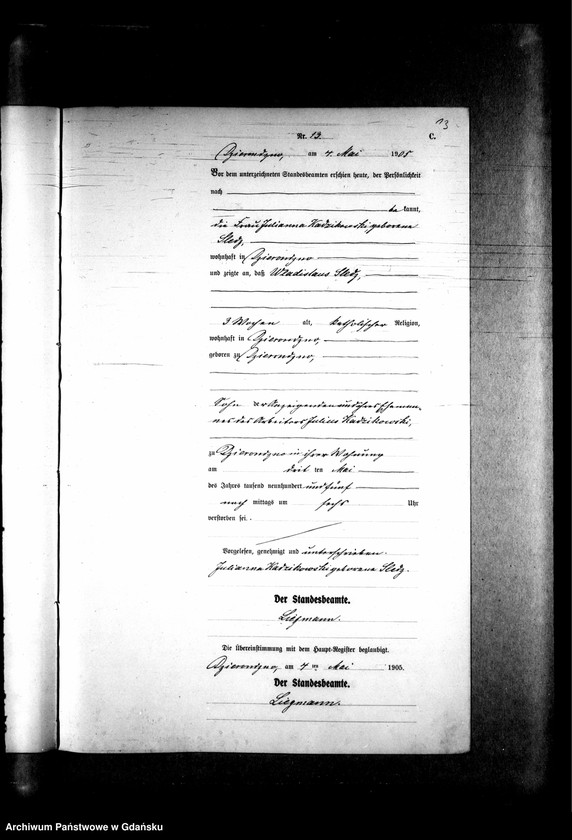 13
Nr. 12. C.
Dzierondzno, am 4. Mai 1905
Vor dem unterzeichneten Standesbeamten erschien heute, der Persönlichkeit
nach
be kannt,
die Frau Julianna Kadzikowski geborene
Sledz,
wohnhaft in Dzierondzno
und zeigte an, daß Wladislaus Sledz,
3 Wochen alt, katholischer Religion,
wohnhaft in Dzierondzno,
geboren zu Dzierondzno,
Sohn der Anzeigenden und ihres Eheman-
nes des Arbeiters Julius Kadzikowski,
zu Dzierondzno in ihrer Wohnung
am drit ten Mai
des Jahres tausend neunhundert und fünf
nach mittags um sechs Uhr
verstorben sei.
Vorgelesen, genehmigt und unterschrieben.
Julianna Kadzikowski geborene Sledz.
Der Standesbeamte.
Liezmann.
Die Übereinstimmung mit dem Haupt-Register beglaubigt.
Dzierondzno, am 4ten Mai 1905.
Der Standesbeamte.
Liezmann.
Archiwum Państwowe w Gdańsku